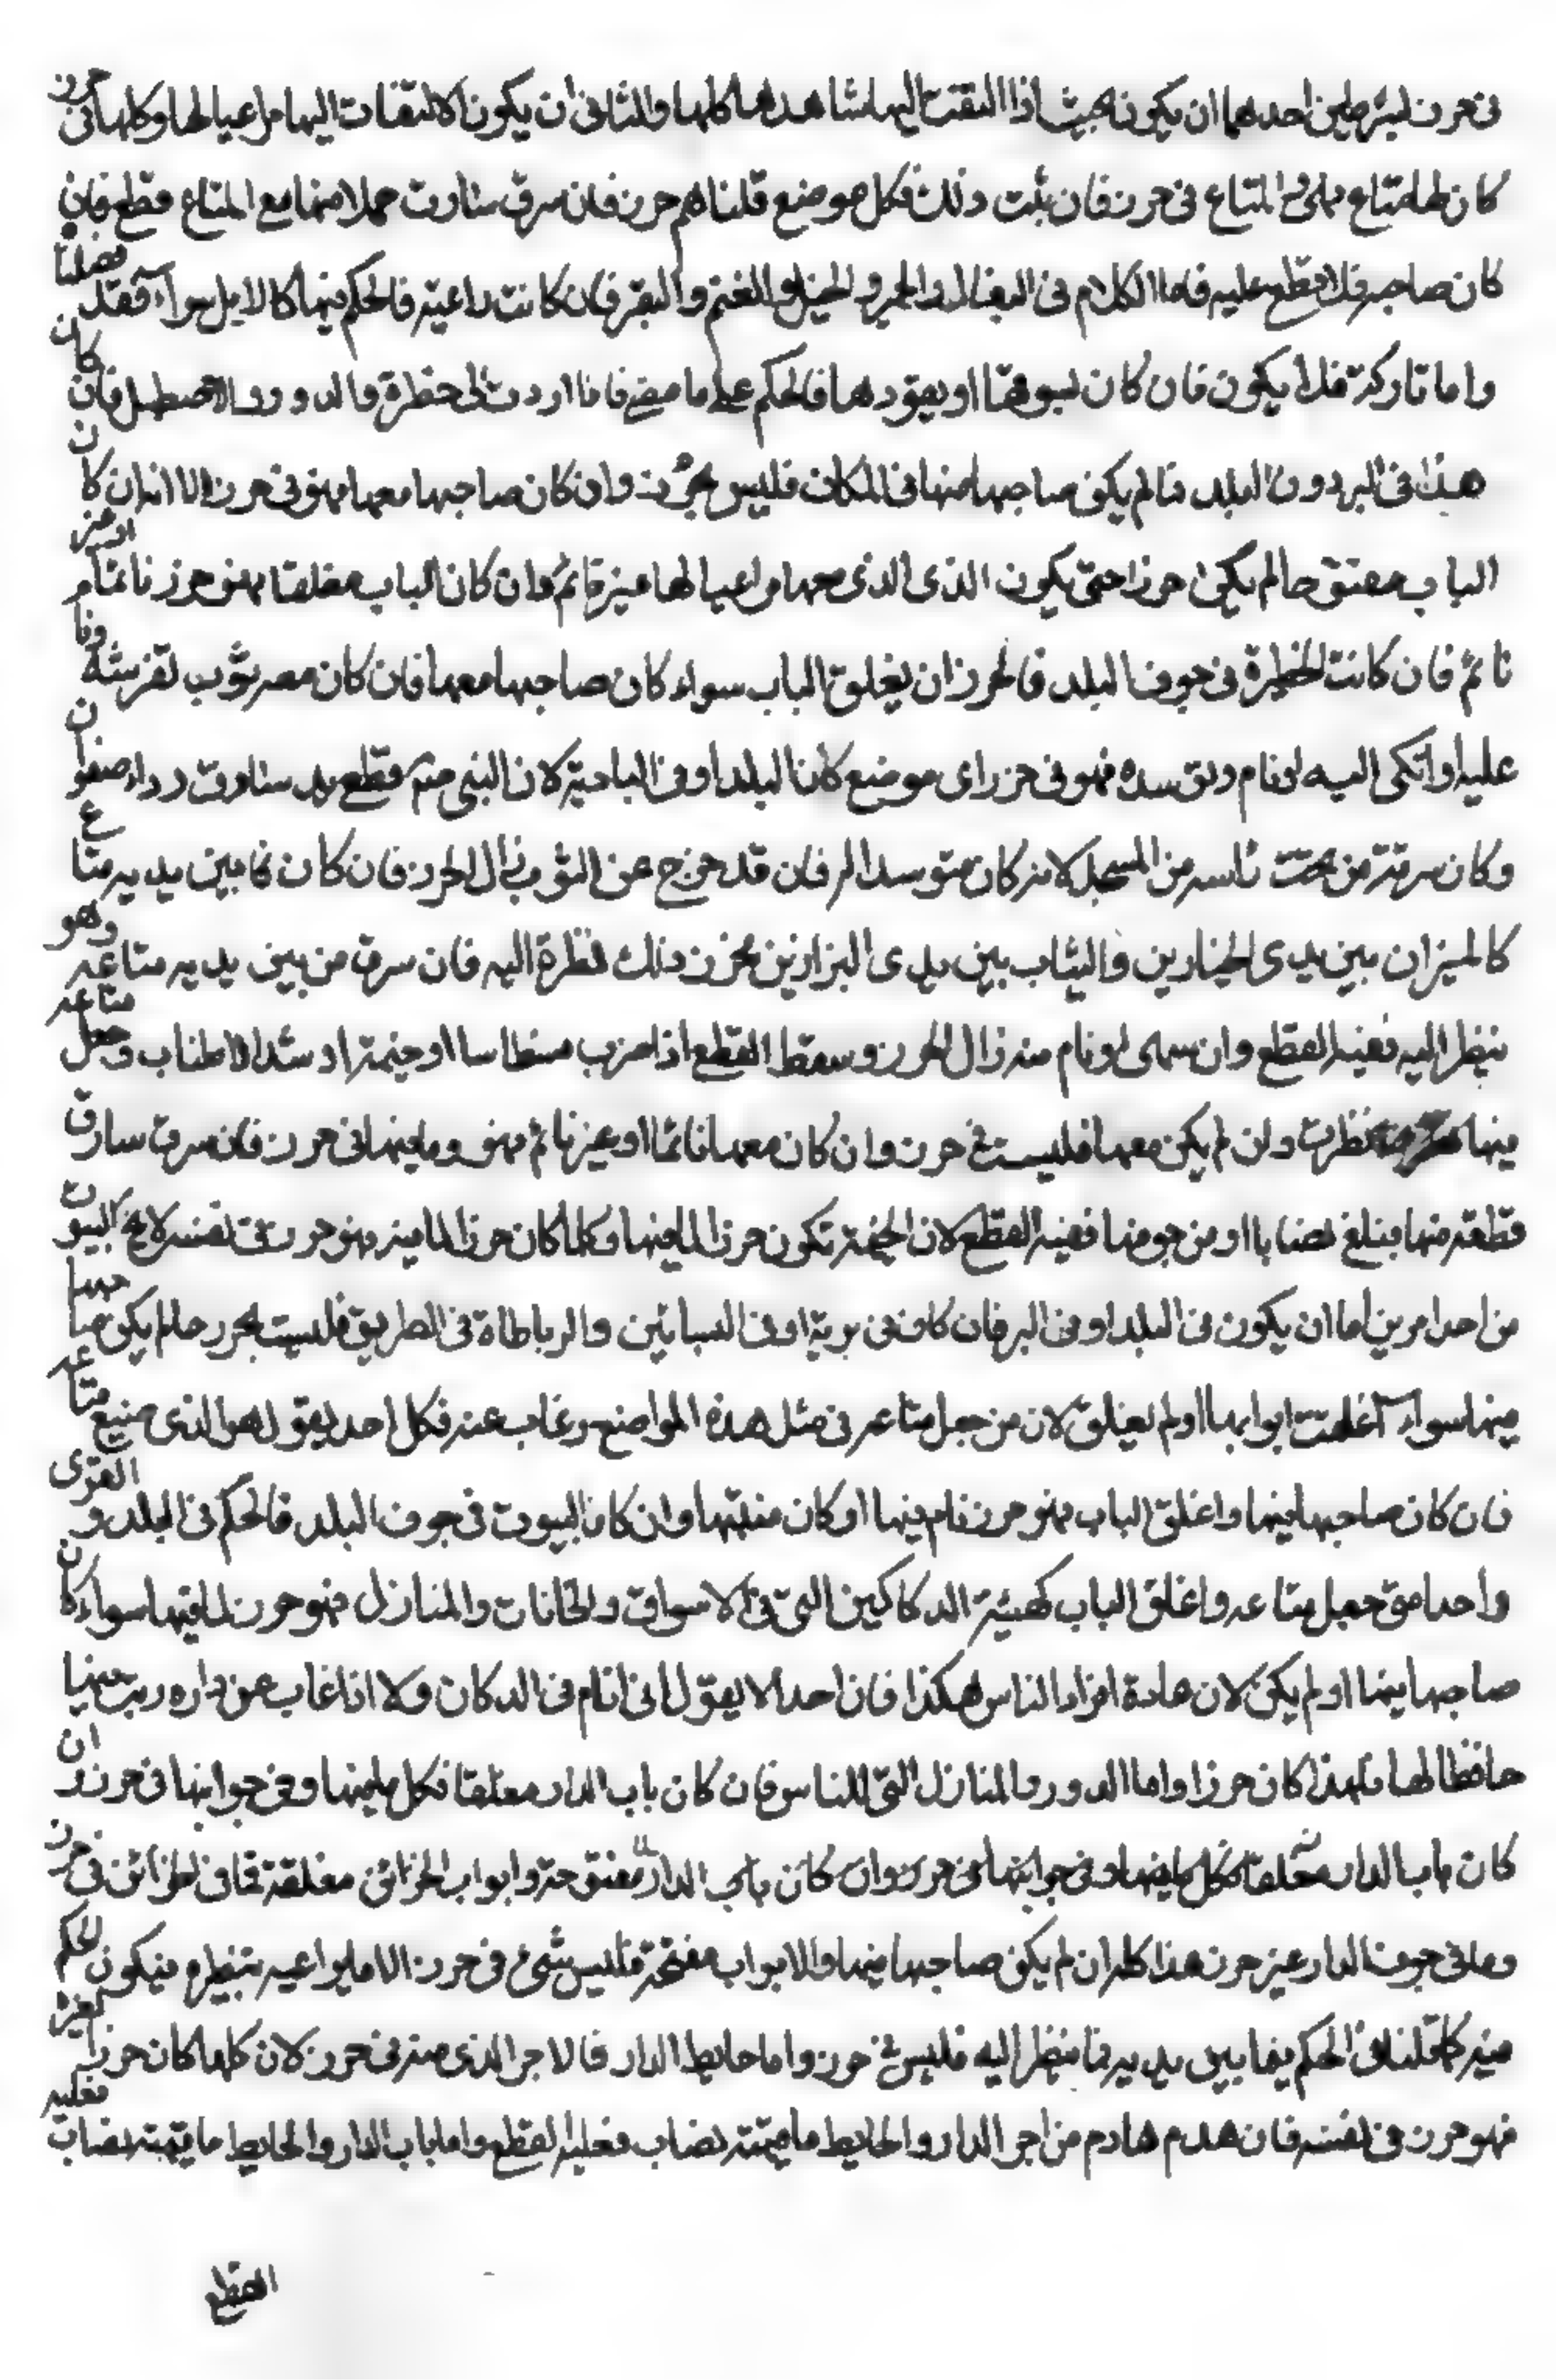 في حرز بشرطين احدهما ان يكون بحيث اذا التفت اليها شاهدها كلها والثاني ان يكون الالتفات اليها مراعيا لها وكلها في حرز
كان لها متاع فهي والمتاع في حرز فان ثبت ذلك فكل موضع قلنا هم حرز فان سرق سارق جملا منها مع المتاع قطع فان
كان صاحبه فلا قطع عليه فاما الكلام في البغال والحمير والخيل والغنم والبقر فان كانت راعية فالحكم فيها كالابل سواء فقد فصلنا
واما تاركة فلا يكون فان كان يسوقها او يقودها فالحكم على ما مضى فاما اردت الى حظرة والدور والاصطبل فان كان
هذا في البر دون البلد فما لم يكن صاحبها منها في المكان فليس بحرز وان كان صاحبها معها فهو في حرز الا انه ان كان
الباب مفتوحا لم يكن حرزا حتى يكون الذي الذي معها مراعيا لها غير قائم وان كان الباب مغلقا فهو حرز نائما او غير
نائم فان كانت الحظيرة في جوف البلد فالحرز ان يغلق الباب سواء كان صاحبها معها فان كان معه ثوب تفرشه ونام
عليه او اتكى اليه او نام وتوسده فهو في حرز اى موضع كان البلد او في البادية لان النبي صم قطع يد سارق رداء صفوان
وكان سرقته من تحت راسه من المسجد لانه كان متوسدا له فان قد خرج عن الثوب زال الحرز فان كان فما بين يديه متاع
كالميزان بين يدى الخبازين والثياب بين يدى البزازين فحرز ذلك نظرة اليه فان سرق من بين يديه متاعه وهو
ينظر اليه ففيه القطع وان سهى او نام منه زال الحرز وسقط القطع اذا ضرب فسطاسا او خيمته او شد الاطناب وجعل متاعه
فيها نظرت وان لم يكن معها فليست في حرز وان كان معها نائما او غير نائم فهو وما فيها في حرز فان سرق سارق
قطعة منها فبلغ نصابا او من جوفها ففيه القطع لان الخيمة تكون حرز لما فيها وكلما كان حرز لما فيه فهو حرز في نفسه لا يخ البيوت
من احد امرين اما ان يكون في البلد او في البر فان كان في برية او في البساتين والرباطاة في الطريق فليست بحرز ما لم يكن صاحبها
فيها سواء اغلقت ابوابها او لم يغلق لان من جعل متاعه في مثل هذه المواضع وغاب عنه فكل احد يقول هو الذي ضيع متاعه
فان كان صاحبها فيها واغلق الباب فهو حرز نام فيها او كان منتبها وان كان البيوت في جوف البلد فالحكم في البلد و القرى
واحد متى جعل متاعه واغلق الباب كهيئة الدكاكين التي في الاسواق والخانات والمنازل فهو حرز لما فيها سواء كان
صاحبها فيها او لم يكن لان عادة احراز الناس هكذا فان احدا لا يقول اني انام في الدكان ولا اذا غاب عن داره رتب فيها
حافظا لها فلهذا كان حرزا واما الدور والمنازل التي للناس فان كان باب الدار مغلقا فكل ما فيها وفي جوانبها في حرز ان
كان باب الدار مغلقا فكل ما فيها وفي جوانبها في حرز وان كان باب الدار مفتوحة وابواب الخزائن مغلقة فما في الخزائن في حرز
وما في جوف الدار غير حرز هذا كله ان لم يكن صاحبها فيها والابواب مفتحة فليس شئ في حرز الا ما يراعيه بنظره فيكون الحكم
فيه كما قلنا في الحكم فيما بين يديه فما ينظر اليه فليس في حرز واما حايط الدار فالاجر الذي منه في حرز لان كلما كان حرزا لغيره
فهو حرز في نفسه فان هدم هادم من اجر الدار والحايط ما قيمته نصاب فعليه القطع واما باب الدار والحايط ما قيمته نصاب فعليه
القطع